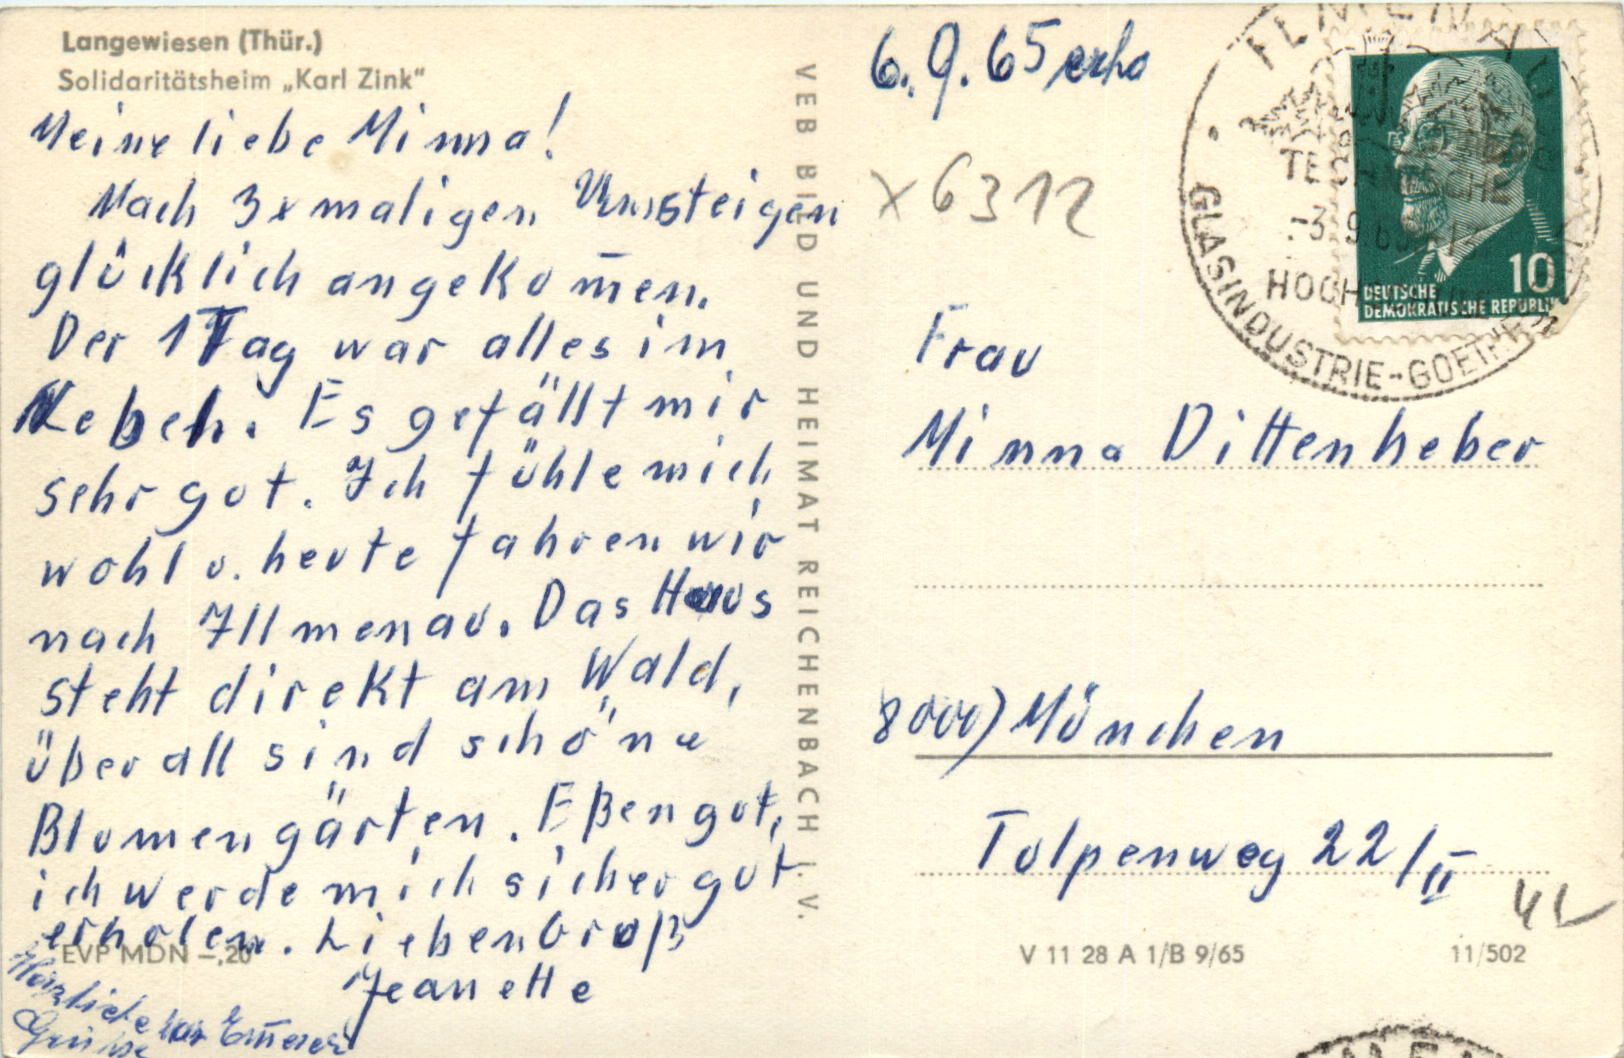 Langewiesen (Thür.)
Solidaritätsheim „Karl Zink"
Meine liebe Minna!
Nach 3x maligen Umsteigen
glücklich angekom̅en.
Der 1 Tag war alles im
Nebel. Es gefällt mir
sehr gut. Ich fühle mich
wohl u. heute fahren wir
nach Illmenau. Das Haus
steht direkt am Wald,
überall sind schöne
Blumengärten. Eßen gut,
ich werde mich sicher gut
erholen. Lieben Gruß
Jeanette
EVP MDN –,20
Herzliche
Grüße
VEB BILD UND HEIMAT REICHENBACH I. V.
6. 9. 65 erh
x 6312
ILMENAU
TECHNISCHE
-3.9.65
HOCH
GLASINDUSTRIE-GOETHE
10
DEUTSCHE
DEMOKRATISCHE REPUBLIK
Frau
Minna Dittenheber
8000) München
Tulpenweg 22/II
V 11 28 A 1/B 9/65
11/502